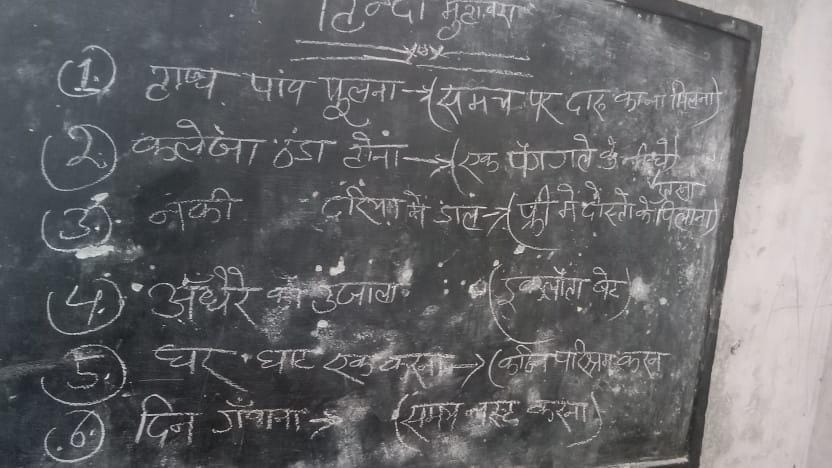 हिन्दी मुहावरा
1. हाथ पांव फूलना → (समय पर दारु का ना मिलना)
2. कलेजा ठंडा होनां → (एक पैग गले के नीचे
3. नेकी दरिया में डाल → (फ्री मे दोस्तो को पिलाना)
4. अँधेरे का उजाला (इकलौता बेटा)
5. घर घाट एक करना → (कठिन परिश्रम करना
6. दिन गँवाना → (समय नस्ट करना)